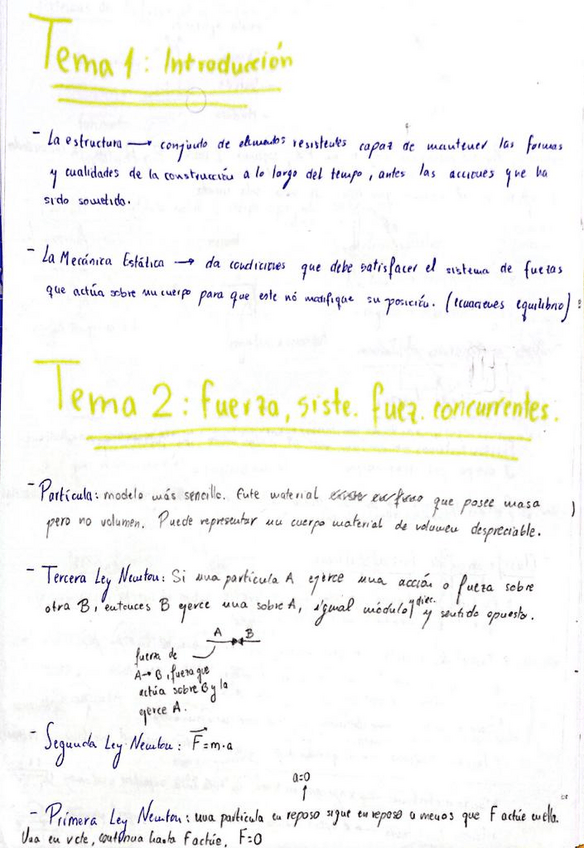 Tema 1: Introducción
- La estructura → conjunto de elementos resistentes capaz de mantener las formas
y cualidades de la construcción a lo largo del tempo, antes las acciones que ha
sido sometido.
- La Mecánica Estática → da condiciones que debe satisfacer el sistema de fuezas
que actúa sobre un cuerpo para que este nó modifique su posición. (ecuaciones equilibrio)
Tema 2: fuerza, siste. fuez. concurrentes.
- Partícula: modelo más sencillo. Ente material que posee masa
pero no volumen. Puede representar un cuerpo material de volumen despreciable.
- Tercera Ley Newton: Si una partícula A ejerce una acción o fueza sobre
direc.
otra B, entonces B ejerce una sobre A, igual módulo, y sentido opuesto.
A B
fuerza de
A→B, fueza que
actúa sobre B y la
ejerce A.
- Segunda Ley Newton: F⃗=m·a
a=0
↑
- Primera Ley Newton: una partícula en reposo sigue en reposo a menos que F actúe en ella.
Una en vcte, continua hasta F actúe. F=0